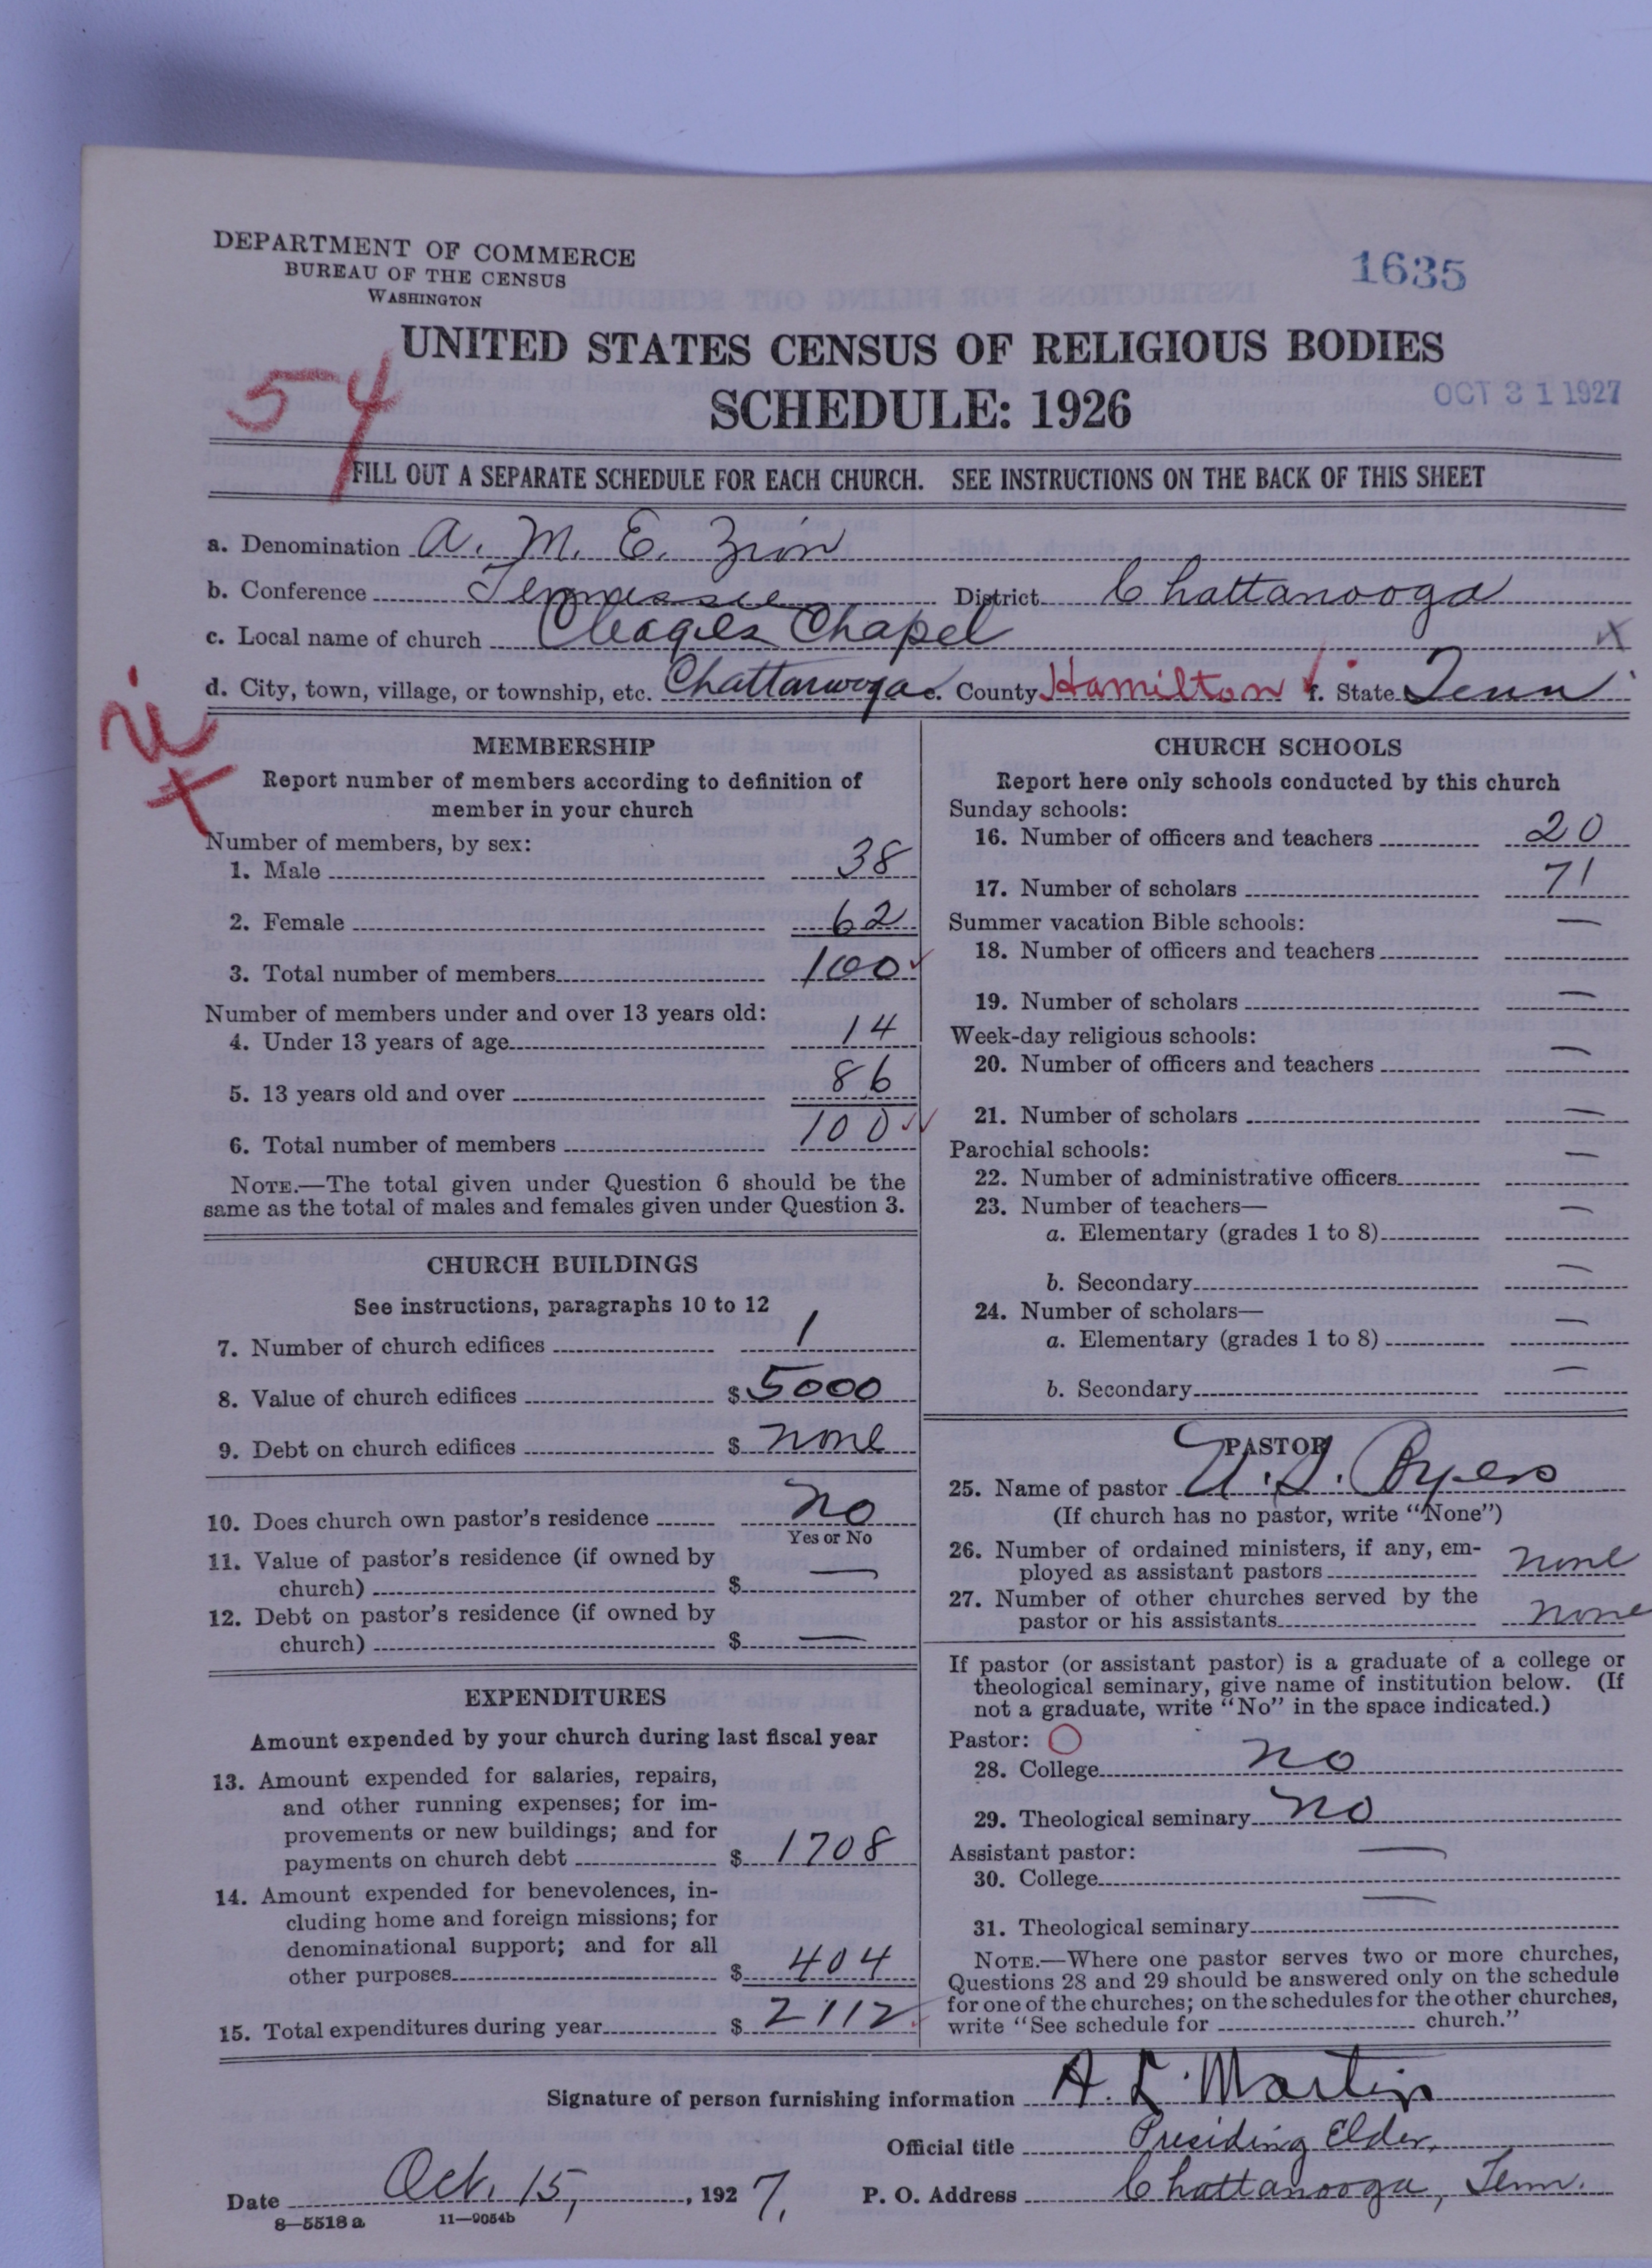 DEPARTMENT OF COMMERCE
BUREAU OF THE CENSUS
WASHINGTON
1635
UNITED STATES CENSUS OF RELIGIOUS BODIES
SCHEDULE: 1926
OCT 31 1927
54
FILL OUT A SEPARATE SCHEDULE FOR EACH CHURCH. SEE INSTRUCTIONS ON THE BACK OF THIS SHEET
a. Denomination A. M. E. Zion
b. Conference Tennessee District Chattanooga
c. Local name of church Cleages Chapel x
d. City, town, village, or township, etc. Chattanooga e. County Hamilton f. State Tenn
MEMBERSHIP
Report number of members according to definition of
member in your church
Number of members, by sex:
1. Male 38
2. Female 62
3. Total number of members 100
Number of members under and over 13 years old:
4. Under 13 years of age 14
5. 13 years old and over 86
6. Total number of members 100
NOTE.—The total given under Question 6 should be the
same as the total of males and females given under Question 3.
CHURCH BUILDINGS
See instructions, paragraphs 10 to 12
7. Number of church edifices 1
8. Value of church edifices $ 5000
9. Debt on church edifices $ none
10. Does church own pastor's residence no
Yes or No
11. Value of pastor's residence (if owned by
church) $ —
12. Debt on pastor's residence (if owned by
church) $ —
EXPENDITURES
Amount expended by your church during last fiscal year
13. Amount expended for salaries, repairs,
and other running expenses; for im-
provements or new buildings; and for
payments on church debt $ 1708
14. Amount expended for benevolences, in-
cluding home and foreign missions; for
denominational support; and for all
other purposes $ 404
15. Total expenditures during year $ 2112
CHURCH SCHOOLS
Report here only schools conducted by this church
Sunday schools:
16. Number of officers and teachers 20
17. Number of scholars 71
Summer vacation Bible schools:
18. Number of officers and teachers —
19. Number of scholars —
Week-day religious schools:
20. Number of officers and teachers —
21. Number of scholars —
Parochial schools:
22. Number of administrative officers —
23. Number of teachers—
a. Elementary (grades 1 to 8) —
b. Secondary —
24. Number of scholars—
a. Elementary (grades 1 to 8) —
b. Secondary —
PASTOR
25. Name of pastor Byers
(If church has no pastor, write "None")
26. Number of ordained ministers, if any, em-
ployed as assistant pastors none
27. Number of other churches served by the
pastor or his assistants none
If pastor (or assistant pastor) is a graduate of a college or
theological seminary, give name of institution below. (If
not a graduate, write "No" in the space indicated.)
Pastor:
28. College no
29. Theological seminary no
Assistant pastor:
30. College —
31. Theological seminary —
NOTE.—Where one pastor serves two or more churches,
Questions 28 and 29 should be answered only on the schedule
for one of the churches; on the schedules for the other churches,
write "See schedule for church."
Signature of person furnishing information A. L. Martin
Official title Presiding Elder,
Date Oct. 15, 1927. P. O. Address Chattanooga, Tenn.
8—5518 a 11—9054b